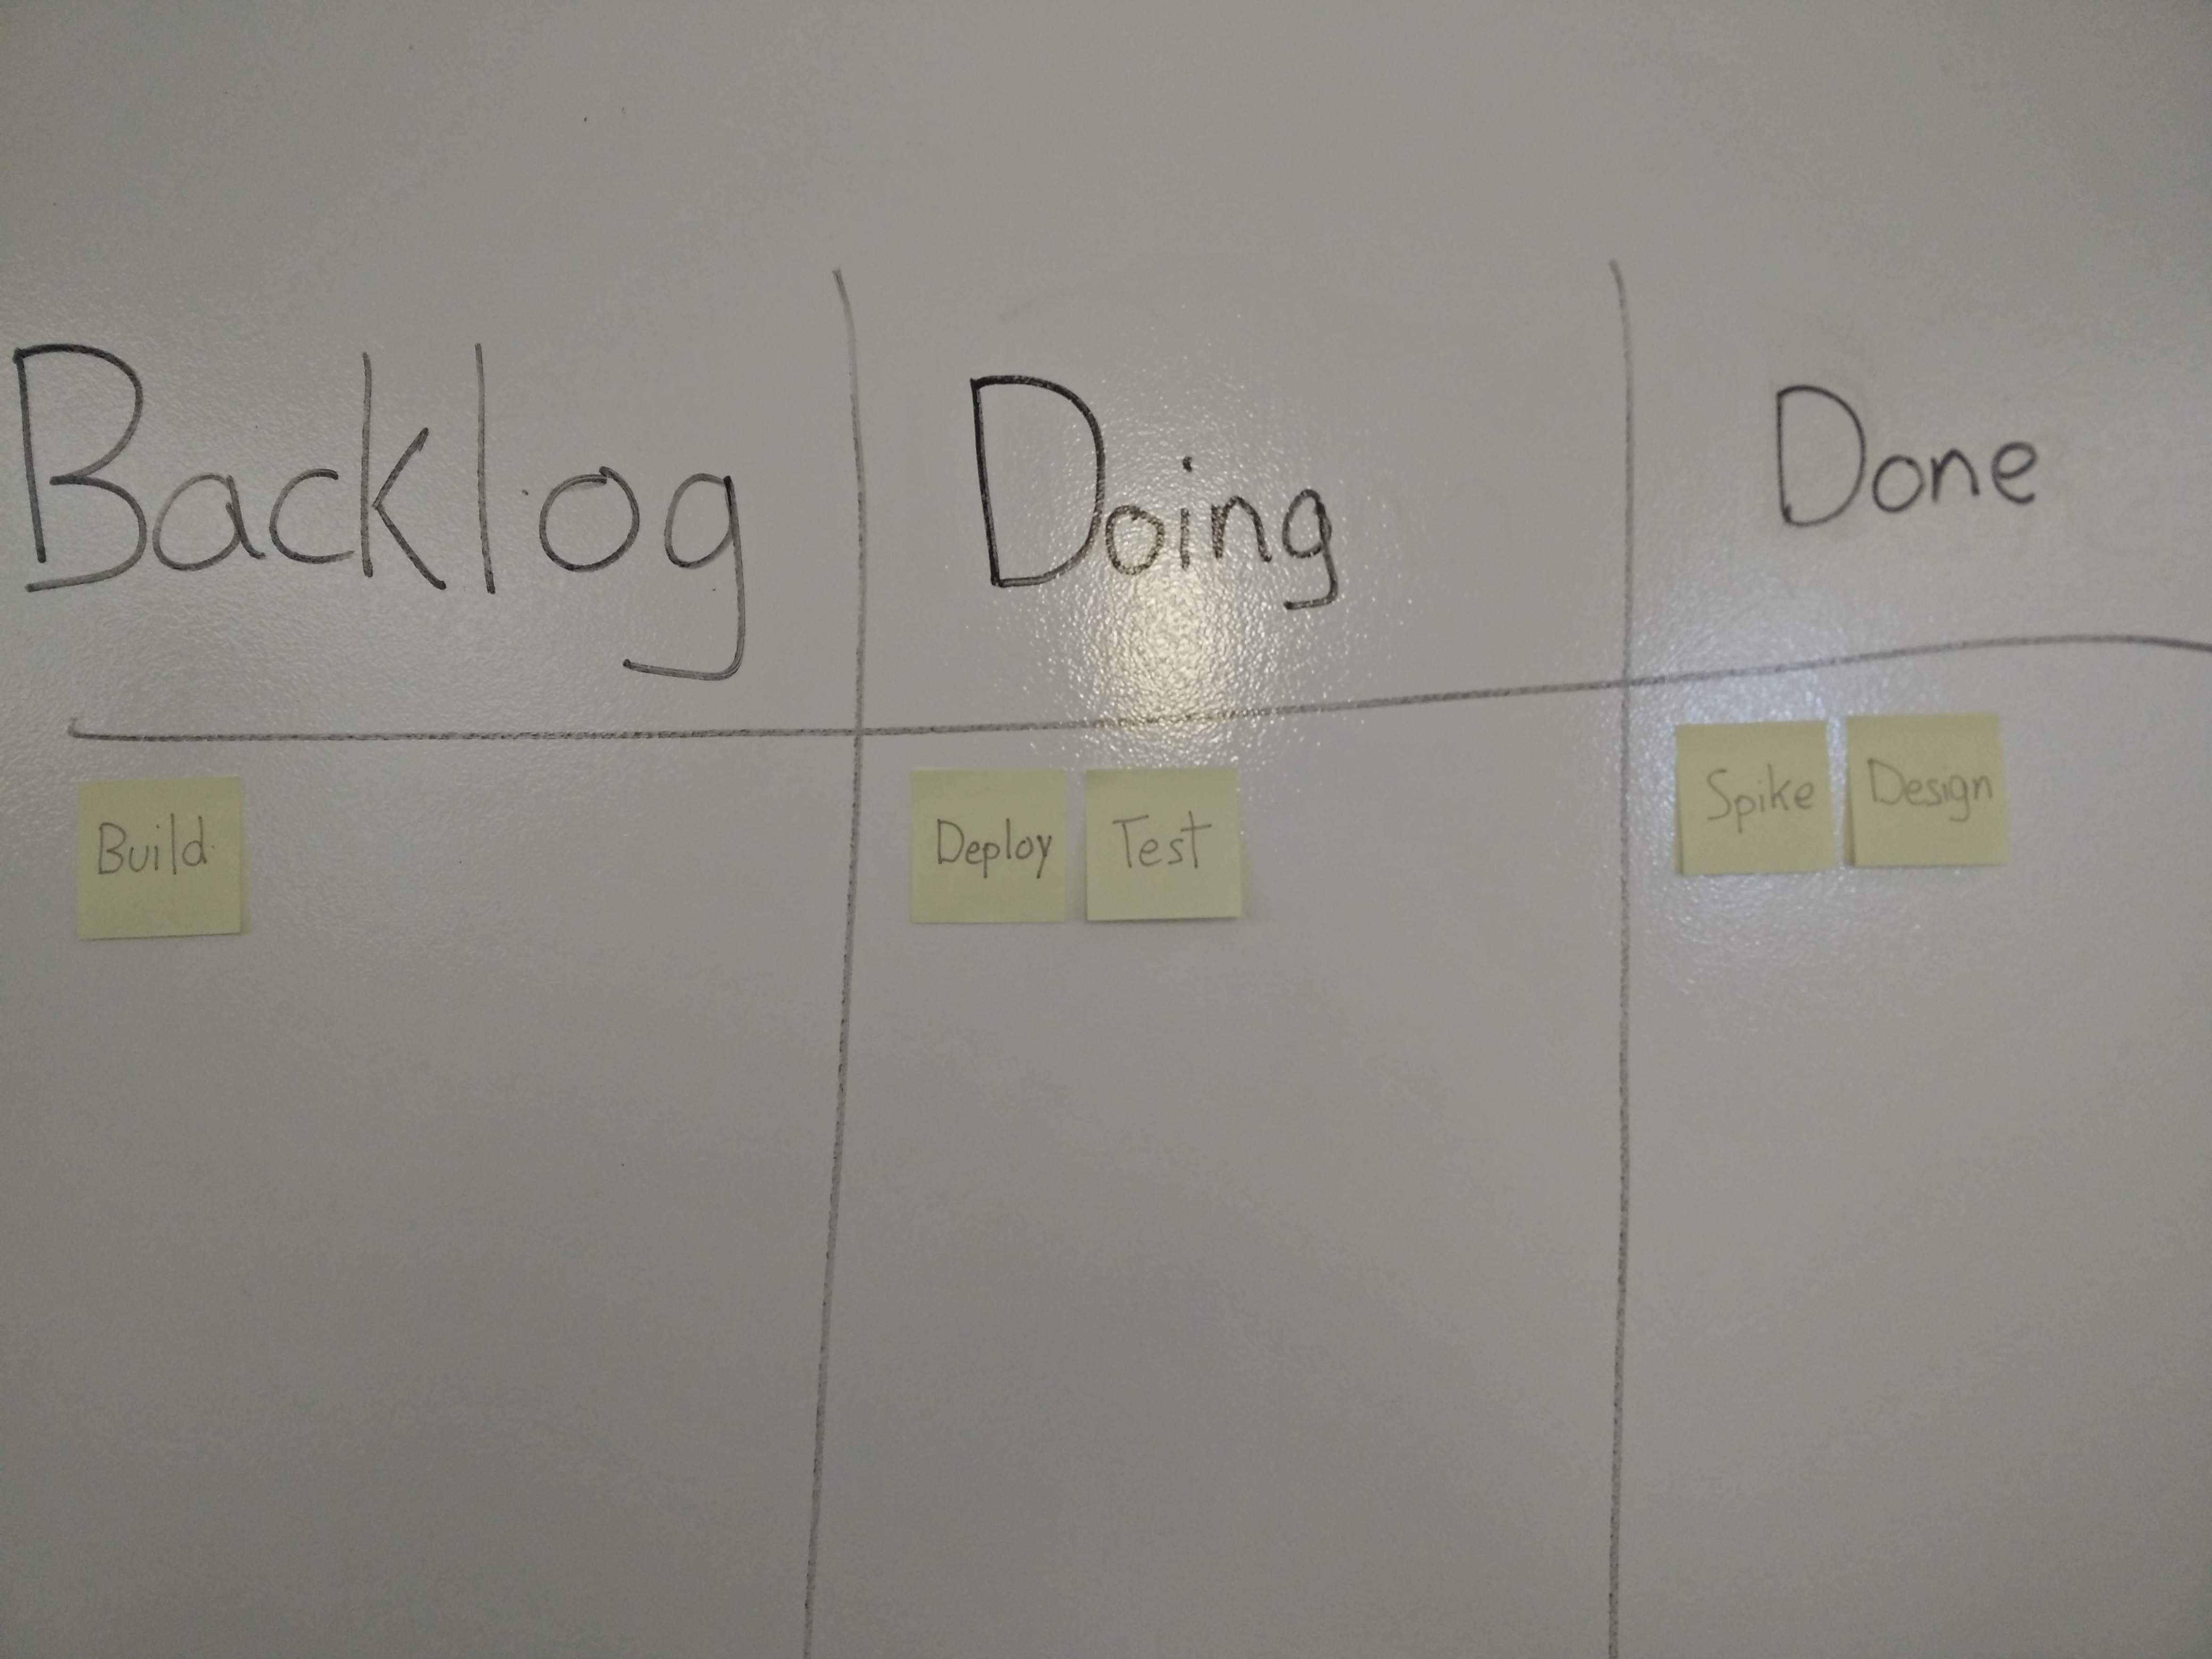 Backlog Doing Done
Build Deploy Test Spike Design